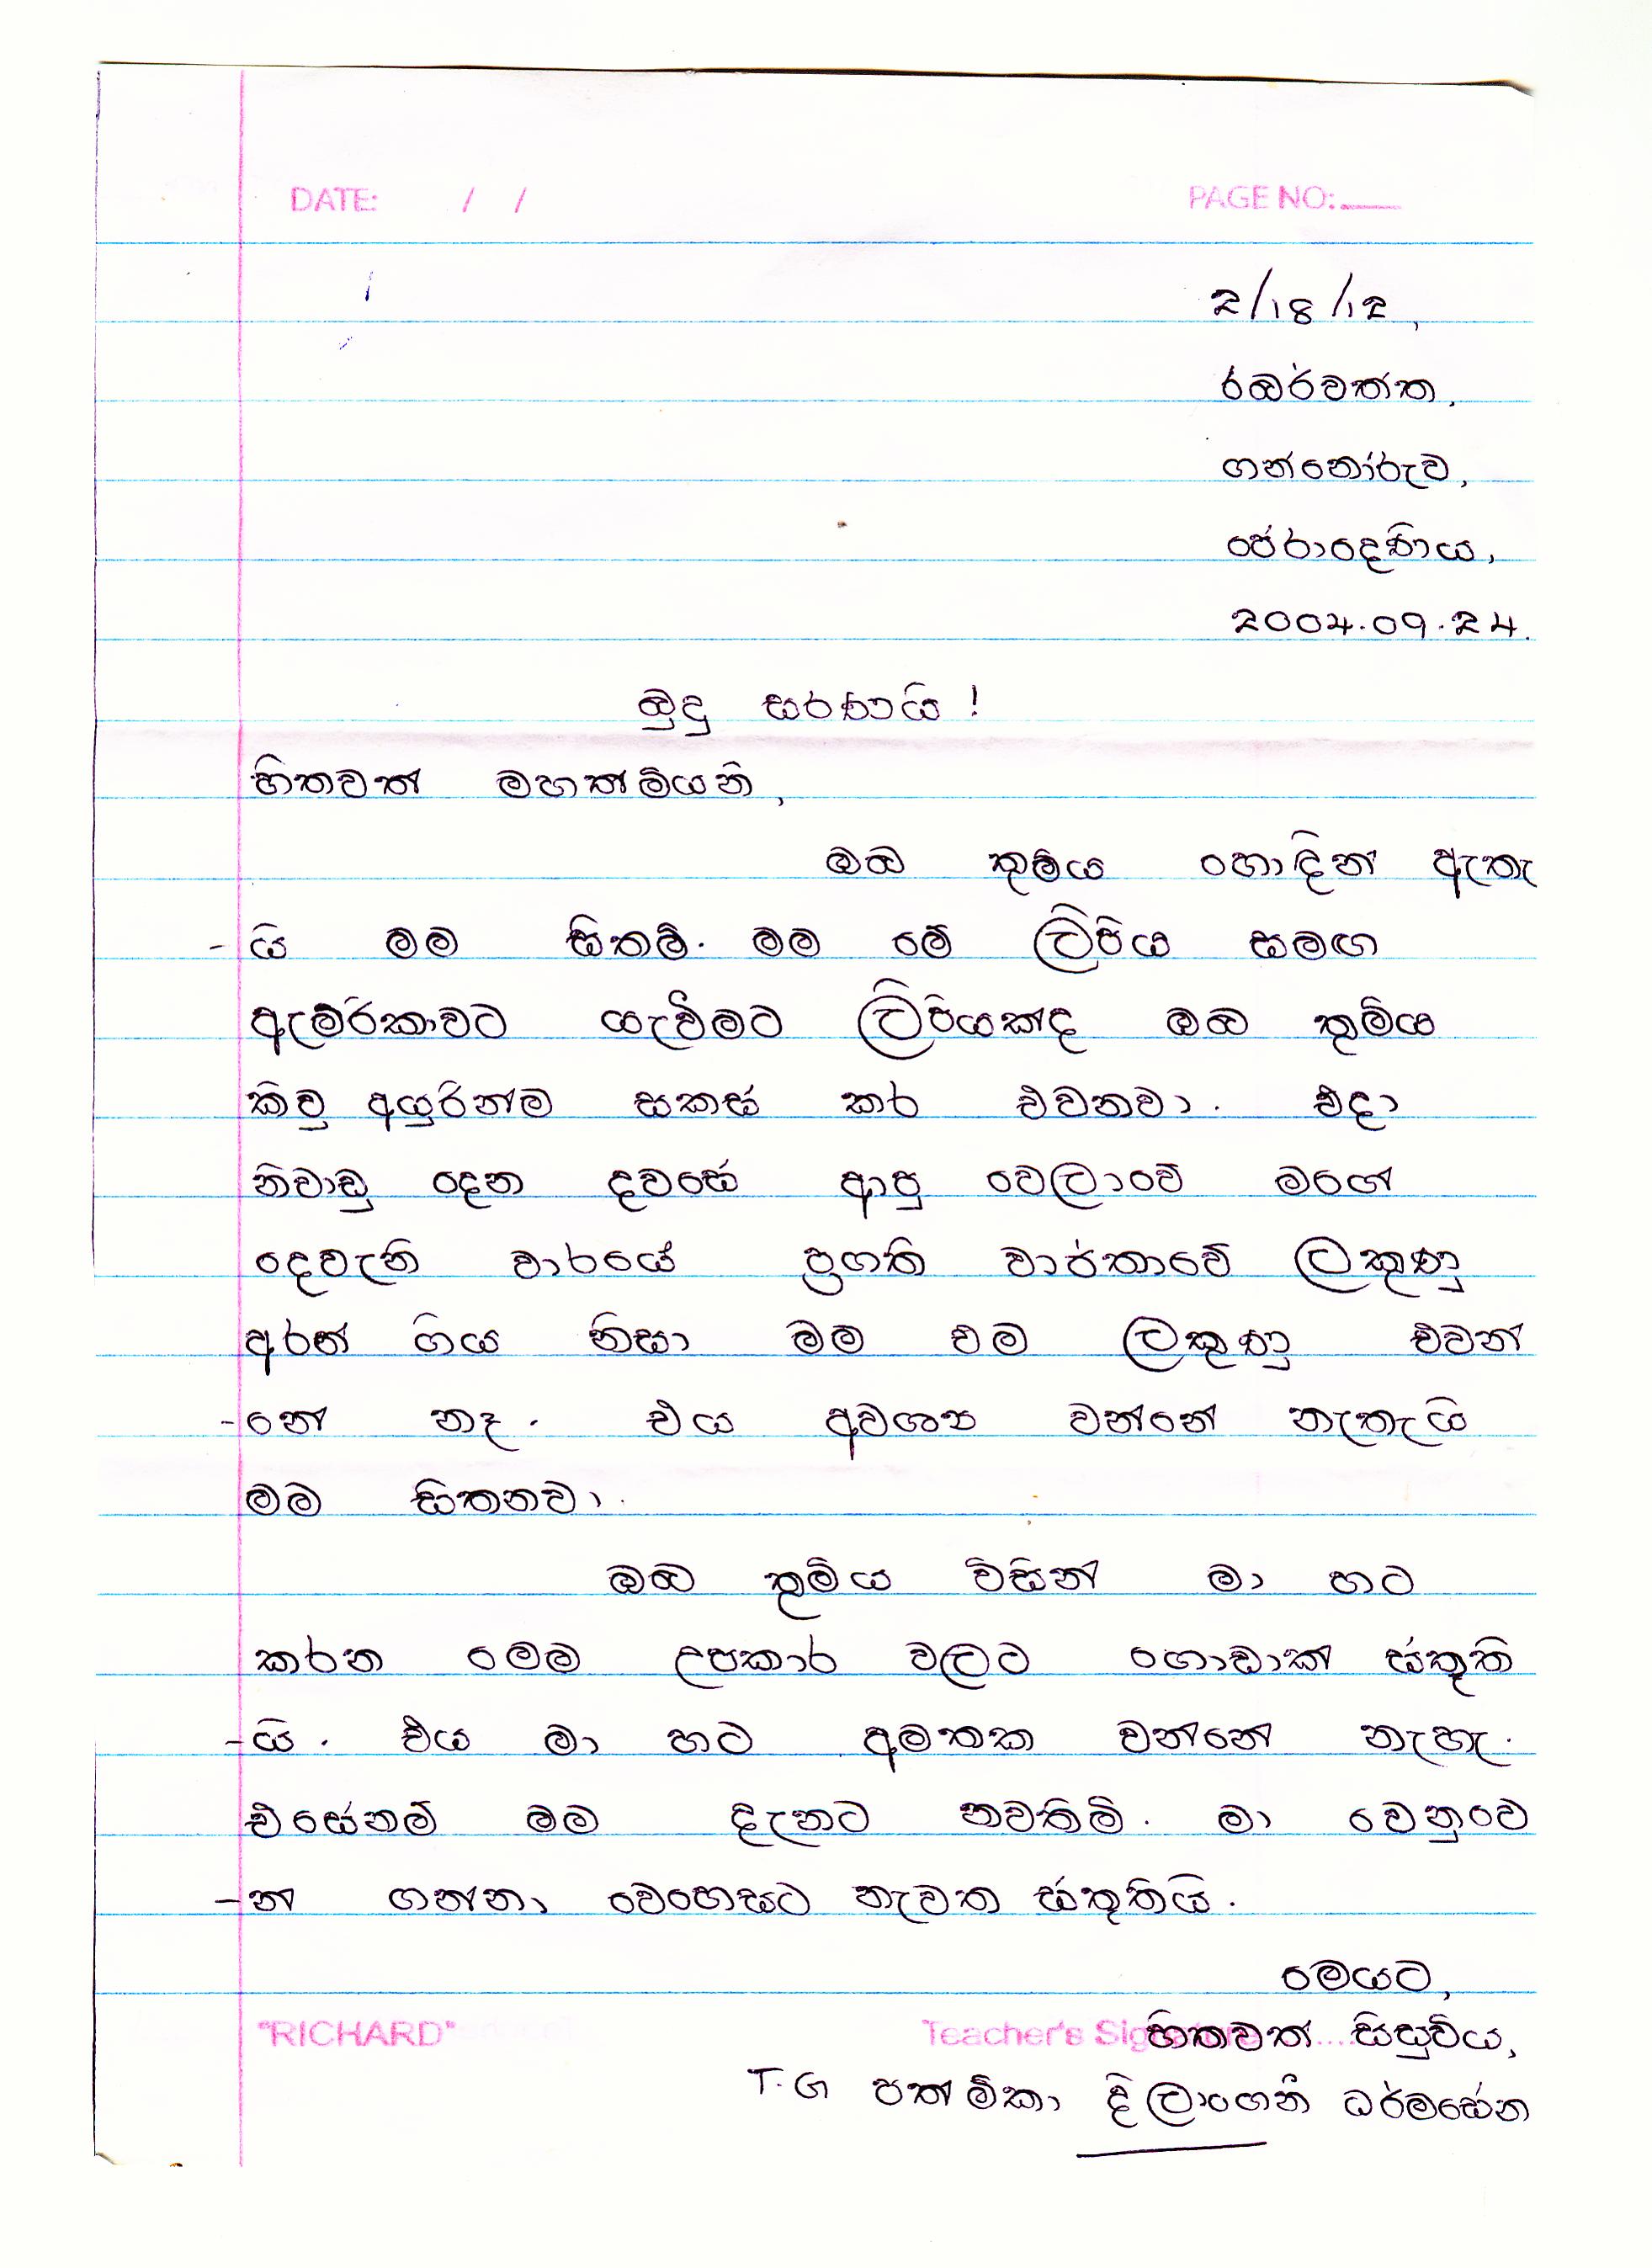 DATE: / / PAGE NO:
2/18/12,
රබර්වත්ත,
ගන්නෝරුව,
පේරාදෙණිය,
2004.09.24.
බුදු සරණයි !
හිතවත් මහත්මියනි,
ඔබ තුමිය හොඳින් ඇතැ
-යි මම සිතමි. මම මේ ලිපිය සමඟ
ඇමරිකාවට යැවීමට ලිපියක්ද ඔබ තුමිය
කිවු අයුරින්ම සකස් කර එවනවා. එදා
නිවාඩු දෙන දවසේ ආපු වෙලාවේ මගේ
දෙවැනි වාරයේ ප්‍රගති වාර්තාවේ ලකුණු
අරන් ගිය නිසා මම එම ලකුණු එවන්
-නේ නෑ. එය අවශ්‍ය වන්නේ නැතැයි
මම සිතනවා.
ඔබ තුමිය විසින් මා හට
කරන මෙම උපකාර වලට ගොඩාක් ස්තූති
-යි. එය මා හට අමතක වන්නේ නැහැ.
එසේනම් මම දැනට නවතිමි. මා වෙනුවෙ
-න් ගන්නා වෙහෙසට නැවත ස්තූතියි.
මෙයට,
"RICHARD" Teacher's Signature හිතවත් සිසුවිය,
T.G පත්මිකා දිලාංගනී ධර්මසේන